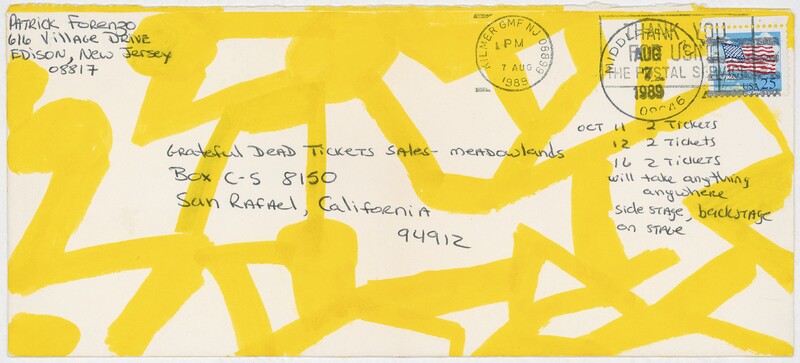 Patrick Forenzo
616 Village Drive
Edison, New Jersey
08817
KILMER GMF NJ 08899
1 PM
7 AUG
1989
MIDDL
AUG
7
1989
THANK YOU
FOR USING
THE POSTAL SERVICE
USA 25
Grateful Dead Tickets Sales- meadowlands
Box C-S 8150
San Rafael, California
94912
OCT 11 2 Tickets
12 2 Tickets
16 2 Tickets
will take anything
anywhere
side stage, backstage
on stage